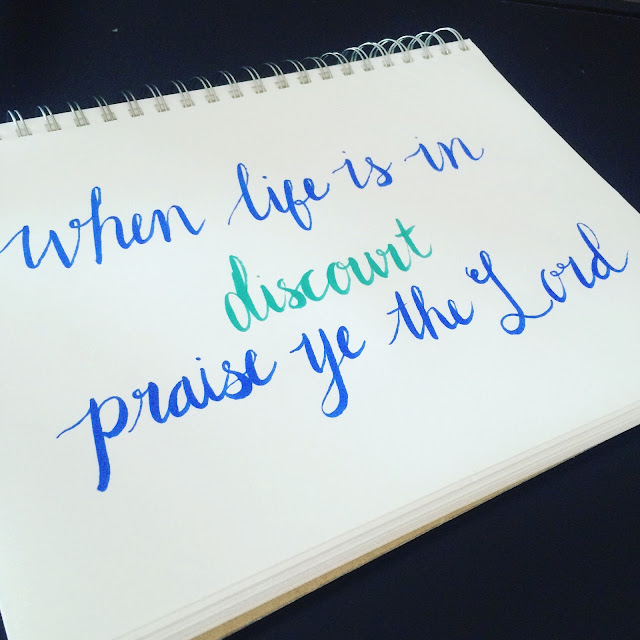 when life is in
discourt
praise ye the Lord